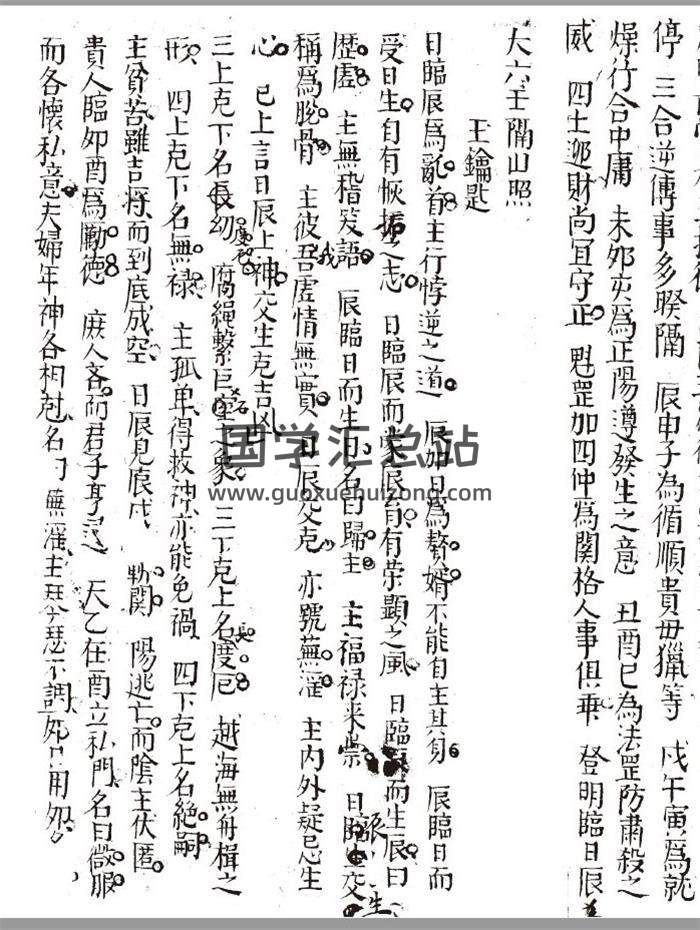 停 三合逆傳事多睽隔 辰申子為循順貴毋獵等 戌午寅為就
燥行合中庸 未卯亥為正陽遵發生之意 丑酉巳為法罡防肅殺之
威 四土迎財尚宜守正 魁罡加四仲為関格人事俱乖 登明臨日辰
大六壬 隔山照
王鑰匙
日臨辰為亂首主行悖逆之道 辰加日為贅婿不能自主其身 辰臨日而
受日生自有恢振之志 日臨辰而 辰 有荣顯之風 日臨 而生辰曰
歴虛 主無稽笑語 辰臨日而生日名曰歸主 主福禄来崇 日 交
稱為脫骨 主彼吾虛情無實 日辰交克 亦號蕪淫 主内外疑忌生
心 已上言日辰上神交生克吉凶
三上克下名長幼 腐繩繫巨 之象 三下克上名度厄 越海無舟楫之
形 四上克下名無禄 主孤单得救神亦能免禍 四下克上名絶嗣
主貧苦雖吉将而到底成空 日辰見辰戌 関 陽逃亡而陰主伏匿
貴人臨卯酉為勵德 庶人吝而君子亨 天乙在酉立私門名曰微服
而各懐私意夫婦年神各相尅名曰蕪淫主琴瑟不調 用
国学汇总站
www.guoxuehuizong.com